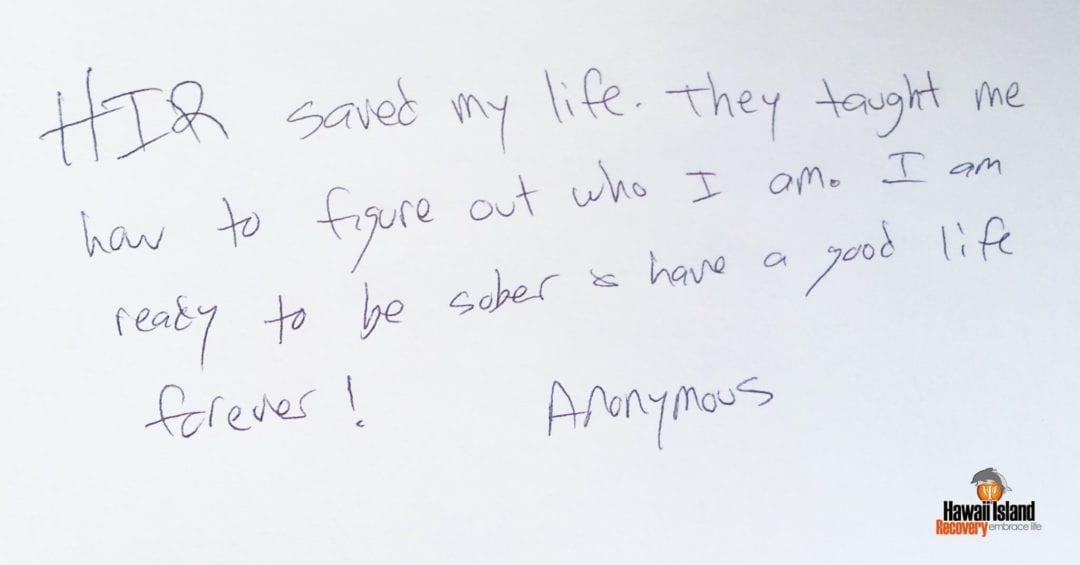 HIR saved my life. They taught me
how to figure out who I am. I am
ready to be sober & have a good life
forever! Anonymous
Hawaii Island
Recovery embrace life